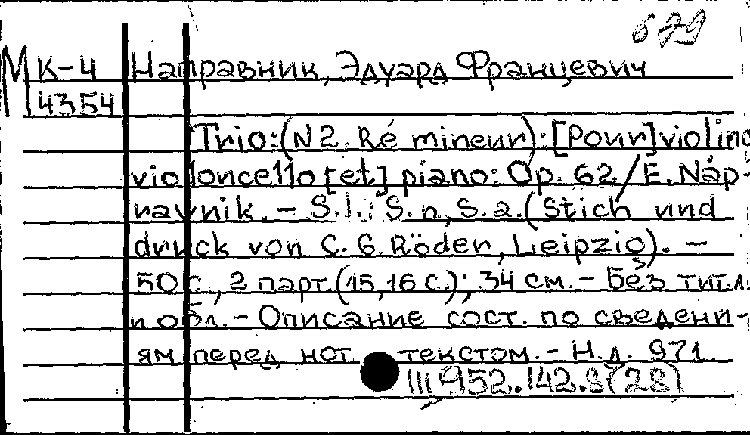 679
М К-4 Направник, Эдуард Францевич
4354
Trio: (N 2. Ré mineur): [Pour] violino
violoncello [et] piano: Op. 62 / E. Náp-
ravnik. – S. l.: S. n, S. a. (Stich und
druck von C. G. Röder, Leipzig). –
50 с., 2 парт. (15, 16 с.); 34 см. – Без тит. л.
и обл. – Описание сост. по сведени-
ям перед нот. текстом. – Н. д. 971
Ш 952.142.8(28)